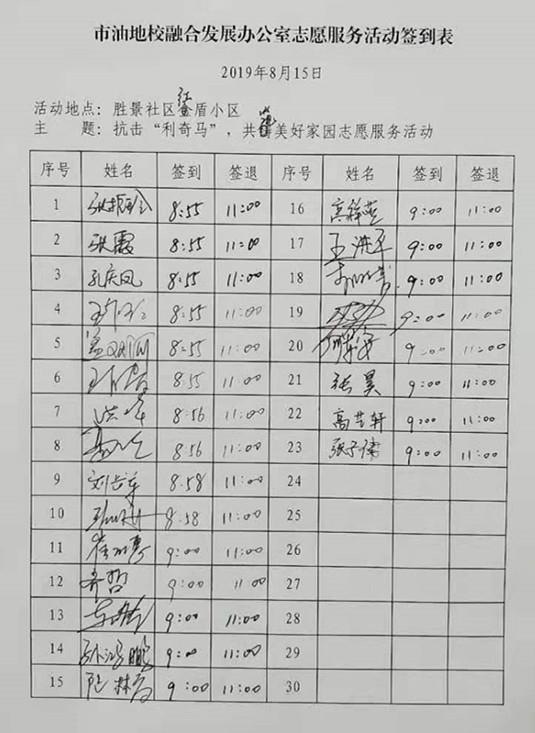 市油地校融合发展办公室志愿服务活动签到表
2019年8月15日
活动地点：胜景社区红盾小区
主 题：抗击“利奇马”，共建美好家园志愿服务活动
序号 姓名 签到 签退 序号 姓名 签到 签退
1 8:55 11:00 16 9:00 11:00
2 张霞 8:55 11:00 17 王洪军 9:00 11:00
3 孔庆凤 8:55 11:00 18 9:00 11:00
4 8:55 11:00 19 9:00 11:00
5 8:55 11:00 20 9:00 11:00
6 8:55 11:00 21 张昊 9:00 11:00
7 洪峰 8:56 11:00 22 高艺轩 9:00 11:00
8 8:56 11:00 23 张子健 9:00 11:00
9 8:58 11:00 24
10 8:58 11:00 25
11 9:00 11:00 26
12 齐哲 9:00 11:00 27
13 9:00 11:00 28
14 孙鸿鹏 9:00 11:00 29
15 9:00 11:00 30